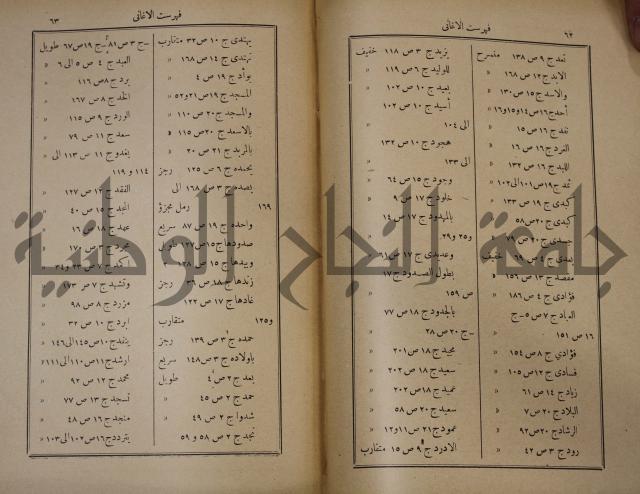 ٦٢
فهرست الاغانى
تعد ج ٩ ص ١٣٨ منسرح
الابد ج ١٢ ص ١٦٨ »
والاسد ج ١٥ ص ١٣٠ »
أحد ج ١٦ ص ١٤ و١٥ و١٦ »
تفد ج ١٦ ص ١٥ »
الفرد ج ١٦ ص ١٦ »
اللبد ج ١٦ ص ١٣٢ »
ثمد ج ١٩ ص ١٠١ الى ١٠٢ »
كبدى ج ١٩ ص ١٣٣ »
كبدى ج ٢٠ ص ٥٨ »
جسدى ج ٢٠ ص ٧٩ »
بعدى ج ٤ ص ٦٩ خفيف
مقصد ج ١٣ ص ١٥٦ »
فؤادى ج ٤ ص ١٨٦ »
العباد ج ٧ ص ٥ ـ ج
١٦ ص ١٥١ »
فؤادى ج ٨ ص ١٥٤ »
فسادى ج ١٢ ص ١٠٥ »
زياد ج ١٤ ص ٦١ »
البلاد ج ٢٠ ص ٧ »
الرشاد ج ٢٠ ص ٩٢ »
رود ج ٣ ص ٤٢ »
يزيد ج ٣ ص ١١٨ خفيف
للوليد ج ٦ ص ١١٩ »
بعيد ج ١٠ ص ١٠٢ »
أسيد ج ١٠ ص ١٠٢
الى ١٠٤ »
هجود ج ١٠ ص ١٣٢
الى ١٣٣ »
وجود ج ١٥ ص ٦٤ »
خلود ج ١٧ ص ٩ »
بالمهدود ج ١٧ ص ١٤
و٢٥ و٢٩ »
وعديدى ج ١٧ ص ٦١ »
بطول الصدود ج ١٧
ص ١٥٩ »
بالجدود ج ١٨ ص ٧٧
ـ ج ٢٠ ص ٢٨ »
مجيد ج ١٨ ص ٢٠١ »
سعيد ج ١٨ ص ٢٠٢ »
عميد ج ١٨ ص ٢٠٢ »
سعيد ج ٢٠ ص ٥٨ »
عمود ج ٢١ ص ١١ و١٢ »
الادرد ج ٩ ص ١٥ متقارب
فهرست الاغانى
٦٣
يهتدى ج ١٠ ص ٣٢ متقارب
تهتدى ج ١٤ ص ١٦٨ »
بوأد ج ١٩ ص ٤ »
المسجد ج ١٩ ص ٢١ و٥٢ »
والمسجد ج ٢٠ ص ١١٠ »
بالاسعد ج ٢٠ ص ١١٥ »
بالمربد ج ٢١ ص ٢٠ »
يحمده ج ٦ ص ١٢٥ رجز
بصده ج ٣ ص ١٦٨ الى
١٦٩ رمل مجزؤ
واحده ج ١٩ ص ٨٧ سريع
صدودها ج ١٥ ص ١٢٧ طويل
وبيدها ج ١٥ ص ١٢٨ »
زندها ج ١٨ ص ٣٦ رجز
غادها ج ١٧ ص ١٢٢
و١٢٥ متقارب
حمده ج ٣ ص ١٣٩ رجز
باولاده ج ٣ ص ١٤٨ سريع
بعد ج ٢ ص ٤ طويل
حمد ج ٢ ص ٤٥ »
شدوا ج ٢ ص ٤٩ »
نجد ج ٢ ص ٥٨ و٥٩ »
ـ ج ٣ ص ٨١ ـ ج ١٩ ص ٦٧ طويل
العبد ج ٤ ص ٥ الى ٦ »
برد ج ٨ ص ١١٦ »
الخلد ج ٨ ص ١٦٧ »
الورد ج ٩ ص ١١٥ »
سعد ج ١١ ص ٧٩ »
يغدو ج ١١ ص ١١٣ الى
١١٤ و١١٩ »
الفقد ج ١٣ ص ١٢٧ »
المجد ج ١٥ ص ٤٠ »
عهد ج ١٨ ص ١٦ »
مجرد ج ٣ ص ١٧٠ »
أكد ج ٧ ص ٢٣ و٢٤ »
وتشيد ج ٧ ص ١٧٣ »
مزرد ج ٨ ص ٩٨ »
ابرد ج ١٠ ص ٣٢ »
ينفد ج ١٠ ص ١٤٥ الى ١٤٦ »
ارشد ج ١١ ص ١١٠ الى ١١١ »
محمد ج ١٢ ص ٩٢ »
تسجد ج ١٣ ص ٧٧ »
منجد ج ١٦ ص ٤٨ »
يتردد ج ١٦ ص ١٠٢ الى ١٠٣ »
جامعة النجاح الوطنية